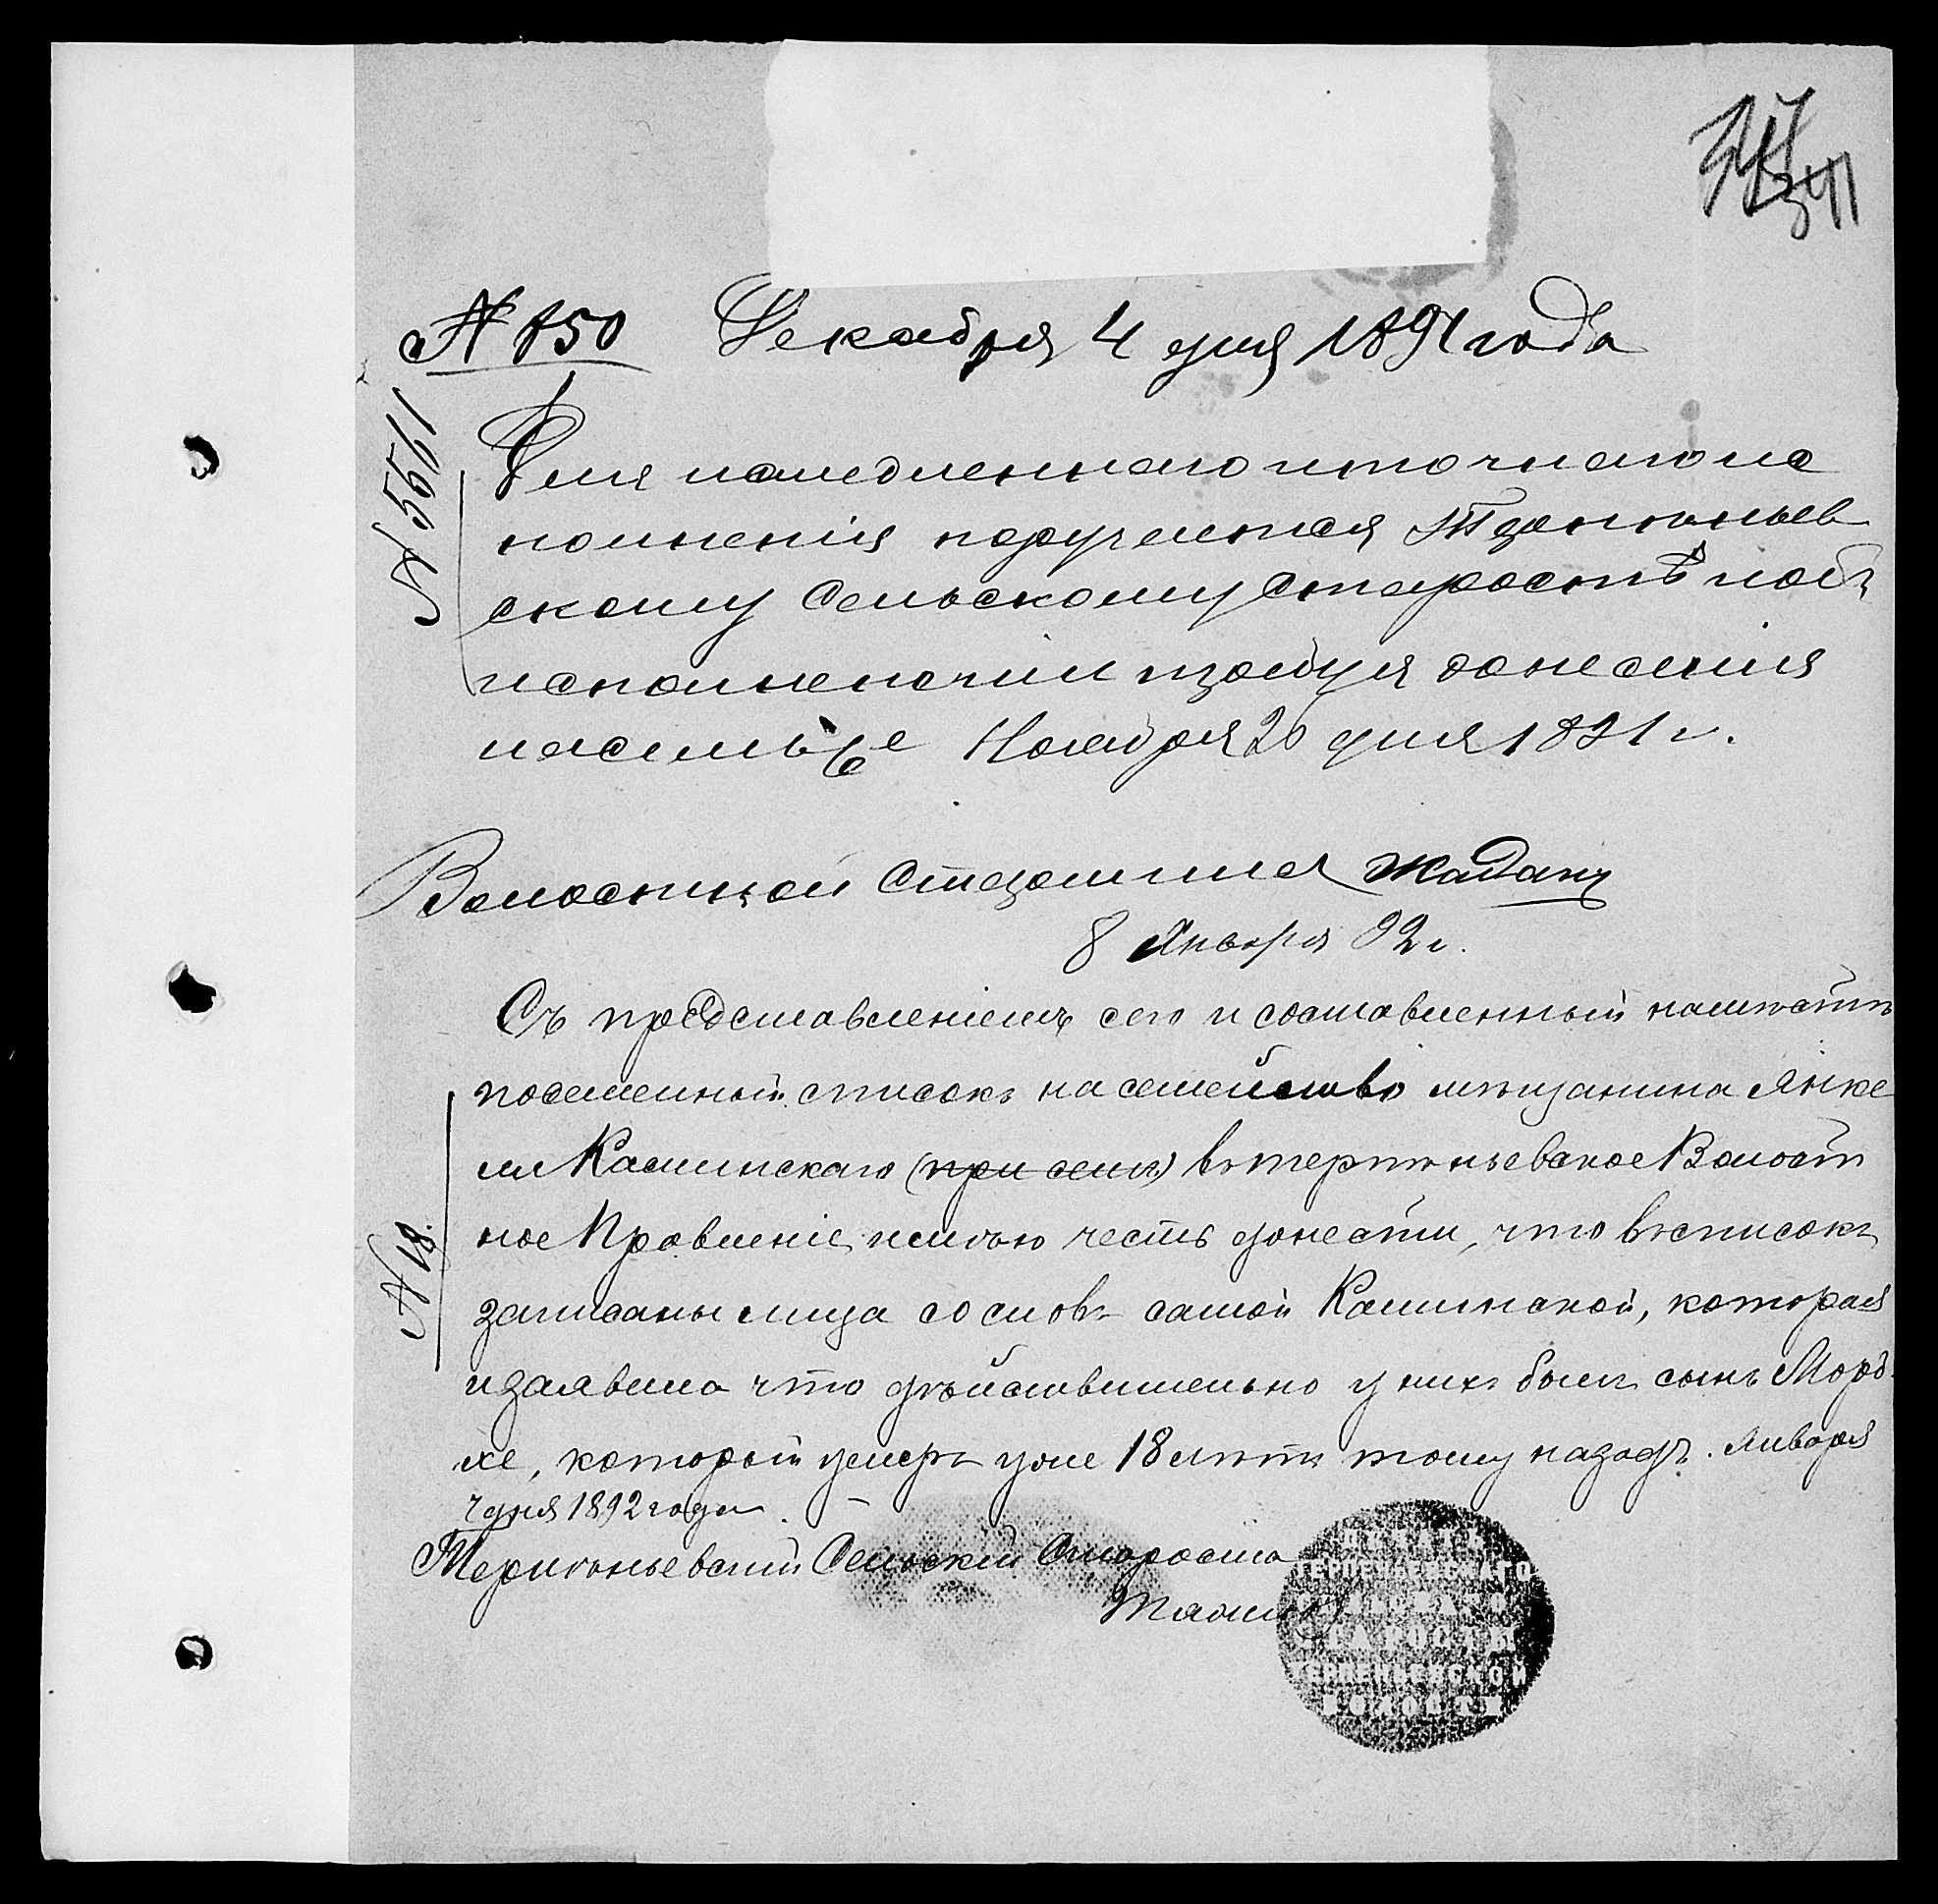 341
№ 850 Декабря 4 дня 1891 года
№ 5561
Для немедленнаго и точнаго ис
полненія поручается Терпѣньев
скому Сельскому Старостѣ и объ
исполненіи требуя донесенія
на семъ же Ноября 26 дня 1891 г.
Волостной Старшина Жадан
8 Января 92 г.
№ 18.
Съ представленіемъ сего и составленный
посемейный списокъ на семейство мѣщанина Янке
ля Каминскаго (при семъ) въ Терпѣньевское Волост
ное Правленіе, имѣю честь донести, что въ списокъ
записаны лица со словъ самой Каминской, которая
и заявила что дѣйствительно у нихъ былъ сынъ Морд
ке, который умеръ уже 18 лѣтъ тому назадъ. Января
дня 1892 года.
Терпѣньевскій Сельскій Староста
ТЕРПЕНЬЕВСКАГО
СЕЛЬСКАГО
СТАРОСТЫ
ТЕРПЕНЬЕВСКОЙ
ВОЛОСТИ